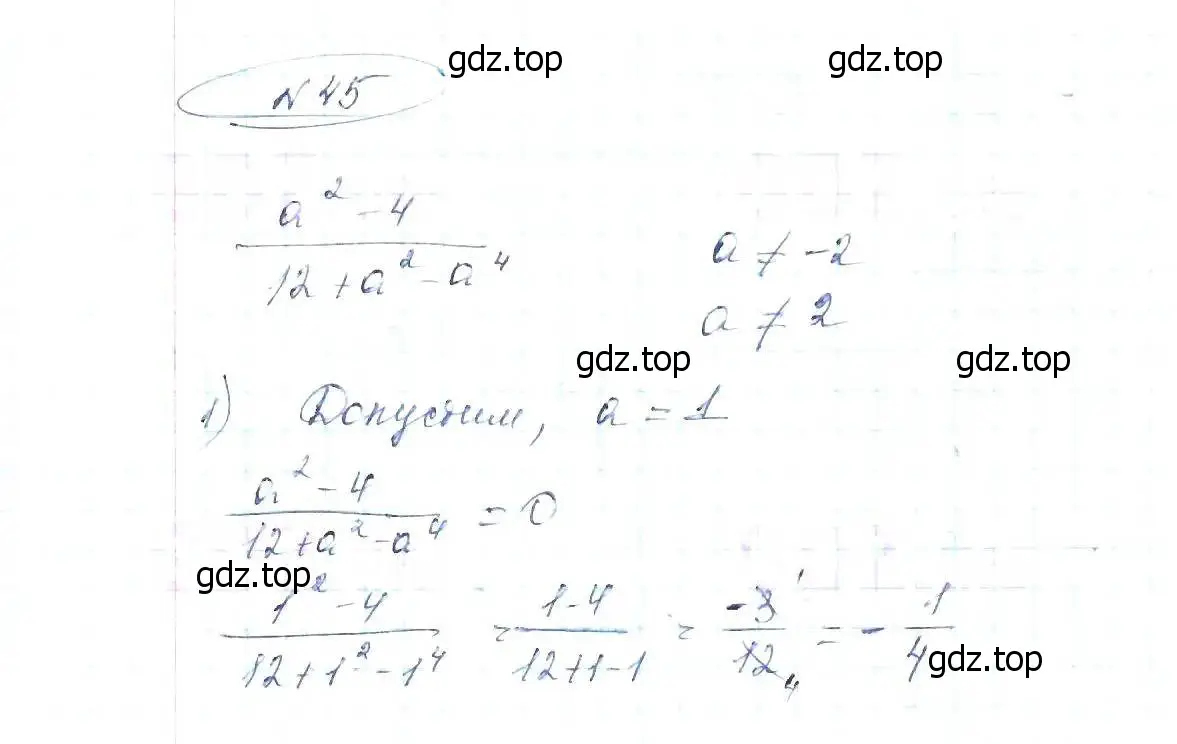 gdz.top gdz.top
N 45
a² - 4
12 + a² - a⁴
a ≠ -2
a ≠ 2
gdz.top gdz.top
1) Допустим, a = 1
a² - 4 / 12 + a² - a⁴ = 0
gdz.top
1² - 4 / 12 + 1² - 1⁴ = 1 - 4 / 12 + 1 - 1 = -3 1 / 12 4 = - 1 / 4
gdz.top